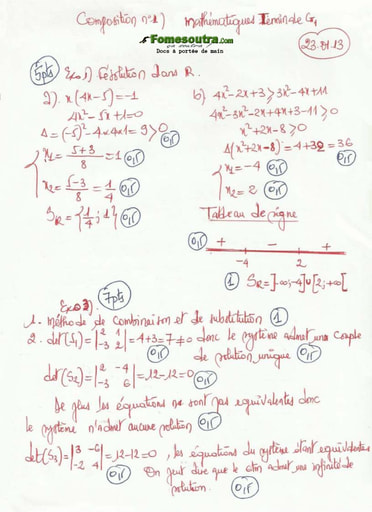 Composition n°1) mathématiques Terminale G1
Fomesoutra.com
ça soutra !
Docs à portée de main
23.01.13
5pts Exo 1) Résolution dans R.
a). x(4x-5)=-1
4x²-5x+1=0
Δ=(-5)²-4x4x1=9>0 0,5
x1=5+3/8=1 0,5
x2=5-3/8=1/4 0,5
SR={1/4;1} 0,5
b) 4x²-2x+3≥3x²-4x+11
4x²-3x²-2x+4x+3-11≥0
x²+2x-8≥0
Δ(x²+2x-8)=4+32=36 0,5
x1=-4 0,5
x2=2 0,5
Tableau de signe
0,5 + - +
-4 2
1 SR=]-∞;-4]∪[2;+∞[
7pts
Exo 2)
1. Méthode de Combinaison et de substitution 1
2. det(S1)=|2 1 -3 2|=4+3=7≠0 donc le système admet un couple
de solution unique 0,5
det(S2)=|2 -4 -3 6|=12-12=0 0,5
De plus les équations ne sont pas equivalentes donc
le système n'admet aucune solution 0,5
det(S3)=|3 -6 -2 4|=12-12=0, les équations du système étant equivalentes
0,5 On peut dire que le admet une infinité de
solution. 0,5